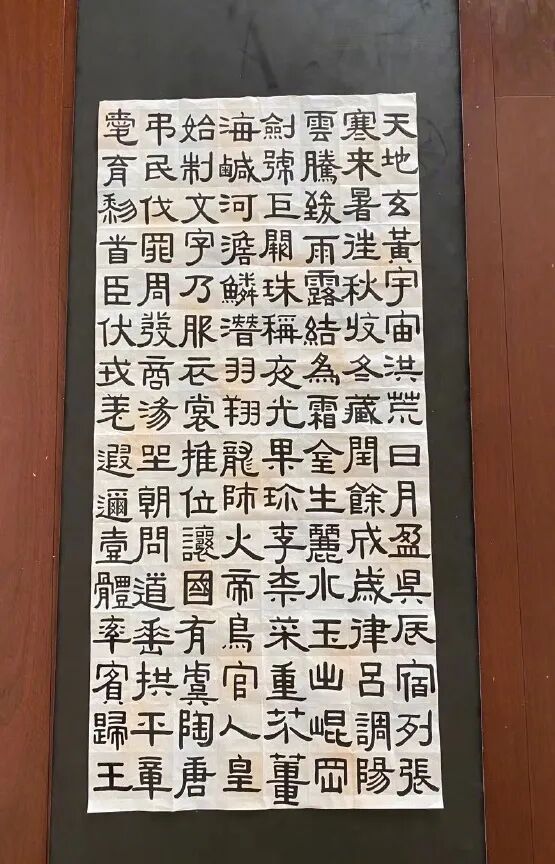 天地玄黃宇宙洪荒日月盈昃辰宿列張
寒来暑往秋收冬藏閏餘成歲律呂調陽
雲騰致雨露結為霜金生麗水玉出崐岡
劍號巨闕珠稱夜光果珍李柰菜重芥薑
海鹹河澹鱗潛羽翔龍師火帝鳥官人皇
始制文字乃服衣裳推位讓國有虞陶唐
弔民伐罪周發商湯坐朝問道垂拱平章
愛育黎首臣伏戎羌遐邇壹體率賓歸王